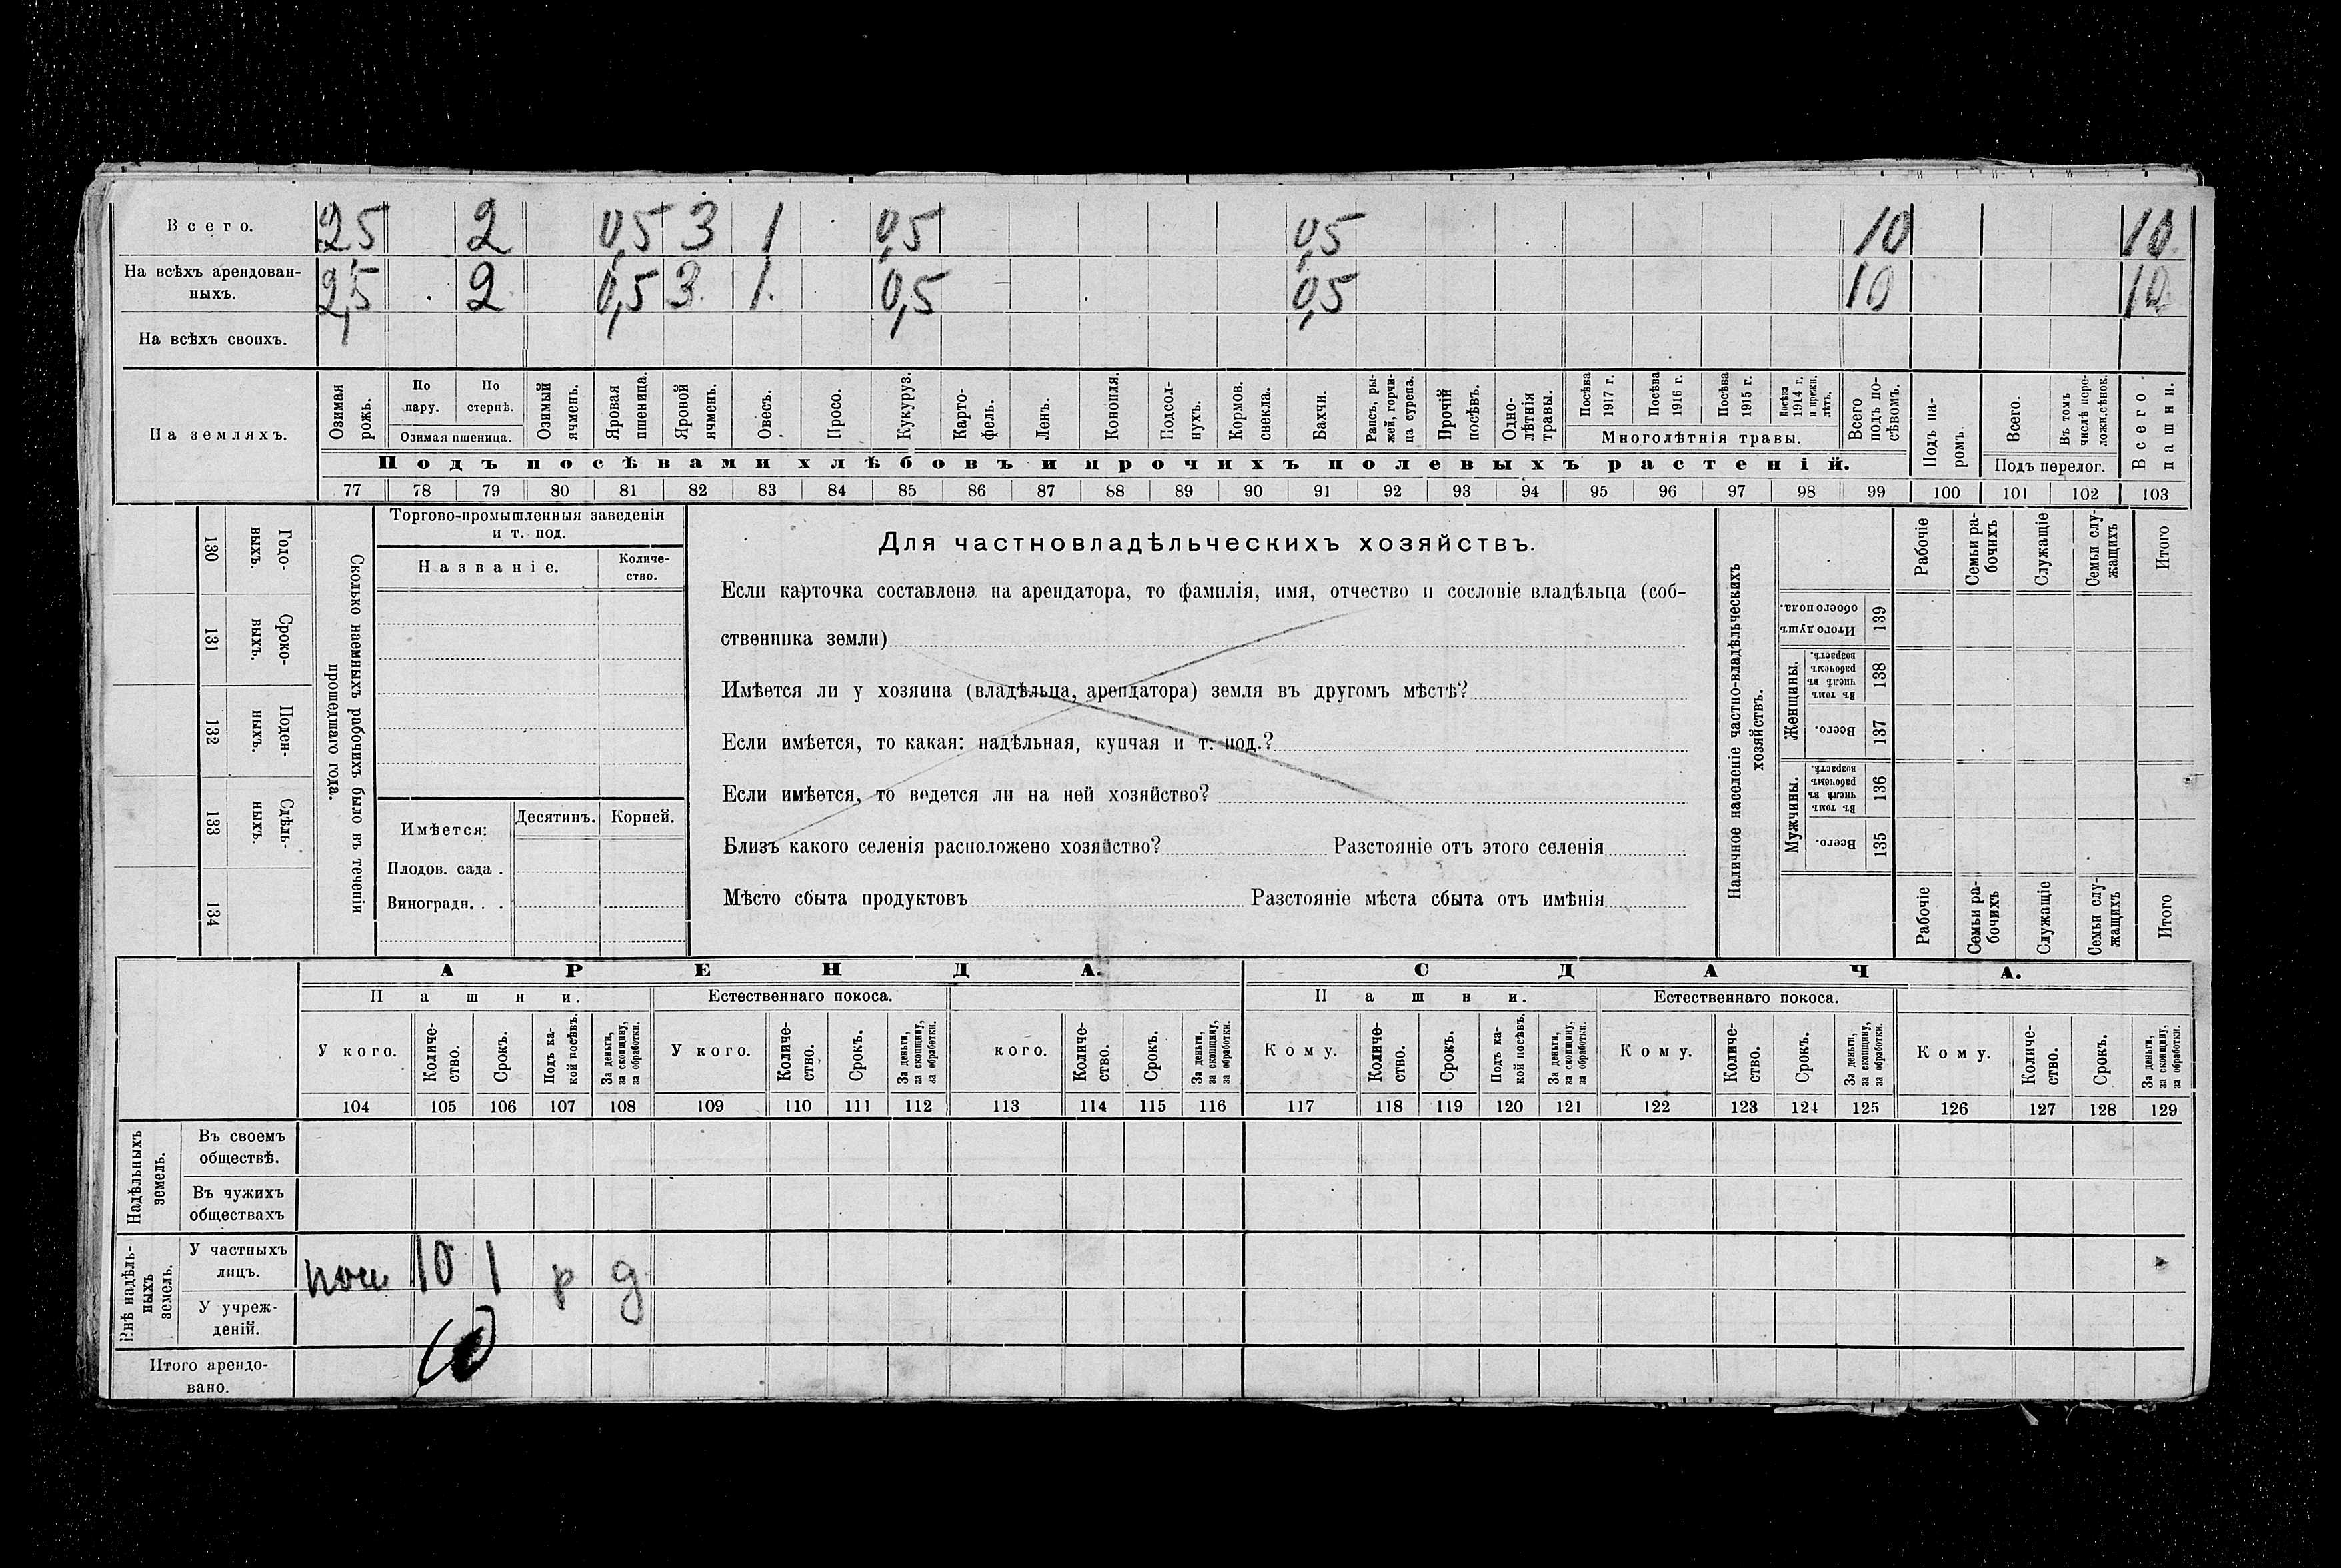 Всего. 2,5 2 0,5 3 1 0,5 0,5 10 10
На всѣхъ арендован-
ныхъ. 2,5 2 0,5 3 1 0,5 0,5 10 10
На всѣхъ своихъ.
На земляхъ.
Озимая рожь.
По пару.
По стернѣ.
Озимая пшеница.
Озимый ячмень.
Яровая пшеница.
Яровой ячмень.
Овесъ.
Просо.
Кукуруз.
Карто-
фель.
Ленъ.
Конопля.
Подсол-
нухъ.
Кормов.
свекла.
Бахчи.
Рапсъ, ры-
жей, горчи-
ца сурепа.
Прочій
посѣвъ.
Одно-
лѣтнія
травы.
Посѣва
1917 г.
Посѣва
1916 г.
Посѣва
1915 г.
Посѣва
1914 г.
и прежн.
лѣтъ.
Многолѣтнія травы.
Всего
подъ по-
сѣвомъ.
Подъ па-
ромъ.
Всего.
Въ томъ
числѣ пере-
ложн.сѣнок.
Подъ перелог.
Всего
пашни.
Подъ посѣвами хлѣбовъ и прочихъ полевыхъ растеній.
77 78 79 80 81 82 83 84 85 86 87 88 89 90 91 92 93 94 95 96 97 98 99 100 101 102 103
130 Годо-
выхъ.
131 Сроко-
ныхъ.
132 Поден-
ныхъ.
133 Сдѣль-
ныхъ.
134
Сколько наемныхъ рабочихъ было въ теченіи
прошедшаго года.
Торгово-промышленныя заведенія
и т. под.
Названіе.
Количе-
ство.
Имѣется:
Десятинъ.
Корней.
Плодов. сада .
Виноградн. . .
Для частновладѣльческихъ хозяйствъ.
Если карточка составлена на арендатора, то фамилія, имя, отчество и сословіе владѣльца (соб-
ственника земли)
Имѣется ли у хозяина (владѣльца, арендатора) земля въ другомъ мѣстѣ?
Если имѣется, то какая: надѣльная, купчая и т. под.?
Если имѣется, то ведется ли на ней хозяйство?
Близъ какого селенія расположено хозяйство? Разстояніе отъ этого селенія
Мѣсто сбыта продуктовъ Разстояніе мѣста сбыта отъ имѣнія
Наличное населеніе частно-владѣльческихъ
хозяйствъ.
Рабочіе
Семьи ра-
бочихъ
Служащіе
Семьи слу-
жащихъ
Итого
Итого душъ
обоего пола.
139
Женщины.
Въ томъ
числѣ въ
рабочемъ
возрастѣ.
138
Всего.
137
Мужчины.
Въ томъ
числѣ въ
рабочемъ
возрастѣ.
136
Всего.
135
Рабочіе
Семьи ра-
бочихъ
Служащіе
Семьи слу-
жащихъ
Итого
АРЕНДА.
СДАЧА.
Пашни.
Естественнаго покоса.
Пашни.
Естественнаго покоса.
У кого.
Количе-
ство.
Срокъ.
Подъ ка-
кой посѣвъ.
За деньги,
за скопщину,
за обработки.
У кого.
Количе-
ство.
Срокъ.
За деньги,
за скопщину,
за обработки.
кого.
Количе-
ство.
Срокъ.
За деньги,
за скопщину,
за обработки.
Кому.
Количе-
ство.
Срокъ.
Подъ ка-
кой посѣвъ.
За деньги,
за скопщину,
за обработки.
Кому.
Количе-
ство.
Срокъ.
За деньги,
за скопщину,
за обработки.
Кому.
Количе-
ство.
Срокъ.
За деньги,
за скопщину,
за обработки.
104 105 106 107 108 109 110 111 112 113 114 115 116 117 118 119 120 121 122 123 124 125 126 127 128 129
Надѣльныхъ
земель.
Въ своемъ
обществѣ.
Въ чужихъ
обществахъ
Внѣ надѣль-
ныхъ
земель.
У частныхъ
лицъ. 10 1 р д
У учреж-
деній.
Итого арендо-
вано. 10